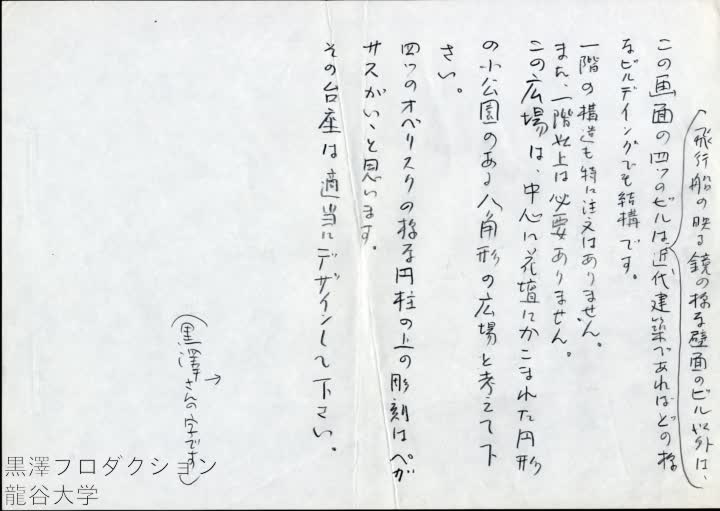 飛行船の映る鏡の様な壁面のビル以外は、
この画面の四ツのビルは近代建築であればどの様
なビルデイングでも結構です。
一階の構造も特に注文はありません。
また、一階以上は必要ありません。
この広場は、中心に花壇にかこまれた円形
の小公園のある八角形の広場と考えて下
さい。
四ツのオベリスクの様な円柱の上の彫刻はペガ
サスがいゝと思います。
その台座は適当にデザインして下さい。
(黒澤さんの字です)
黒澤プロダクション
龍谷大学